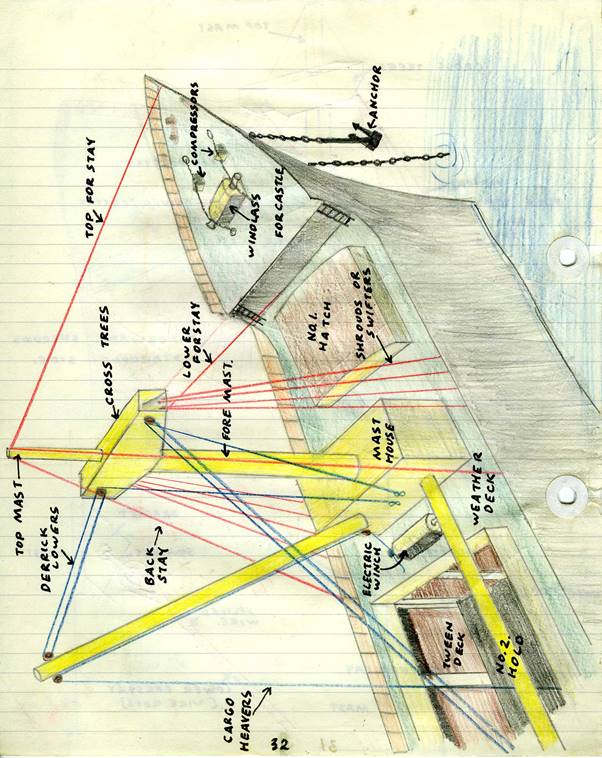 TOP MAST
TOP FOR STAY
COMPRESSORS
ANCHOR
WINDLASS
FORCASTLE
CROSS TREES
LOWER
FORSTAY
NO.1.
HATCH
SHROUDS OR
SWIFTERS
FORE MAST.
MAST
HOUSE
DERRICK
LOWERS
BACK
STAY
ELECTRIC
WINCH
WEATHER
DECK
TWEEN
DECK
NO.2.
HOLD
CARGO
HEAVERS
32